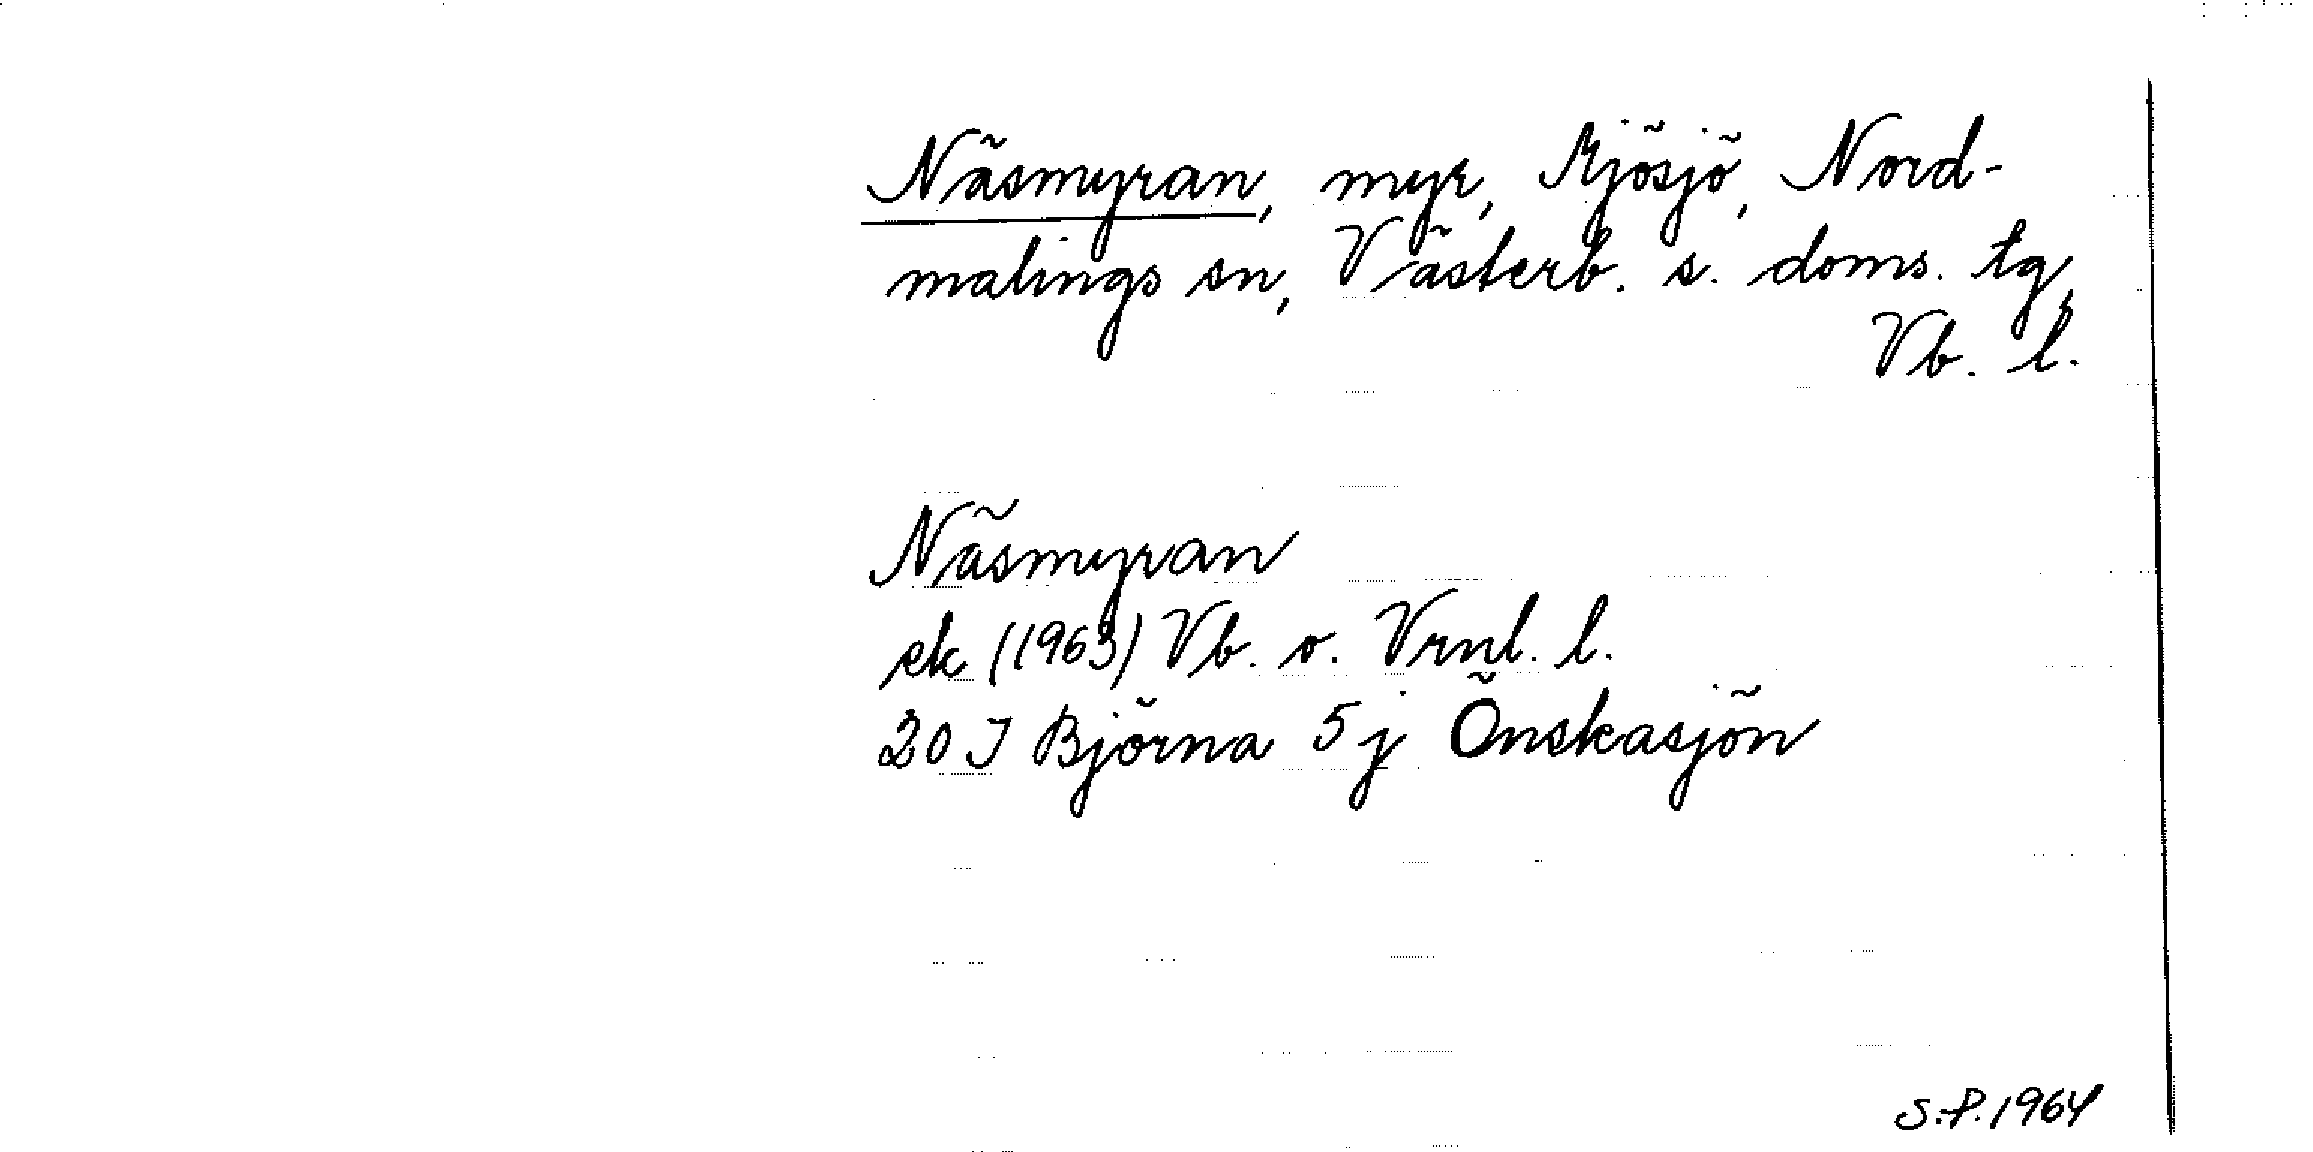 Näsmyran, myr, Mjösjö, Nord-
malings sn, Västerb. s. doms. tg,
Vb. l.
Näsmyran
ek (1963) Vb. o. Vrnl. l.
20 J Björna 5 j Önskasjön
S.P. 1964